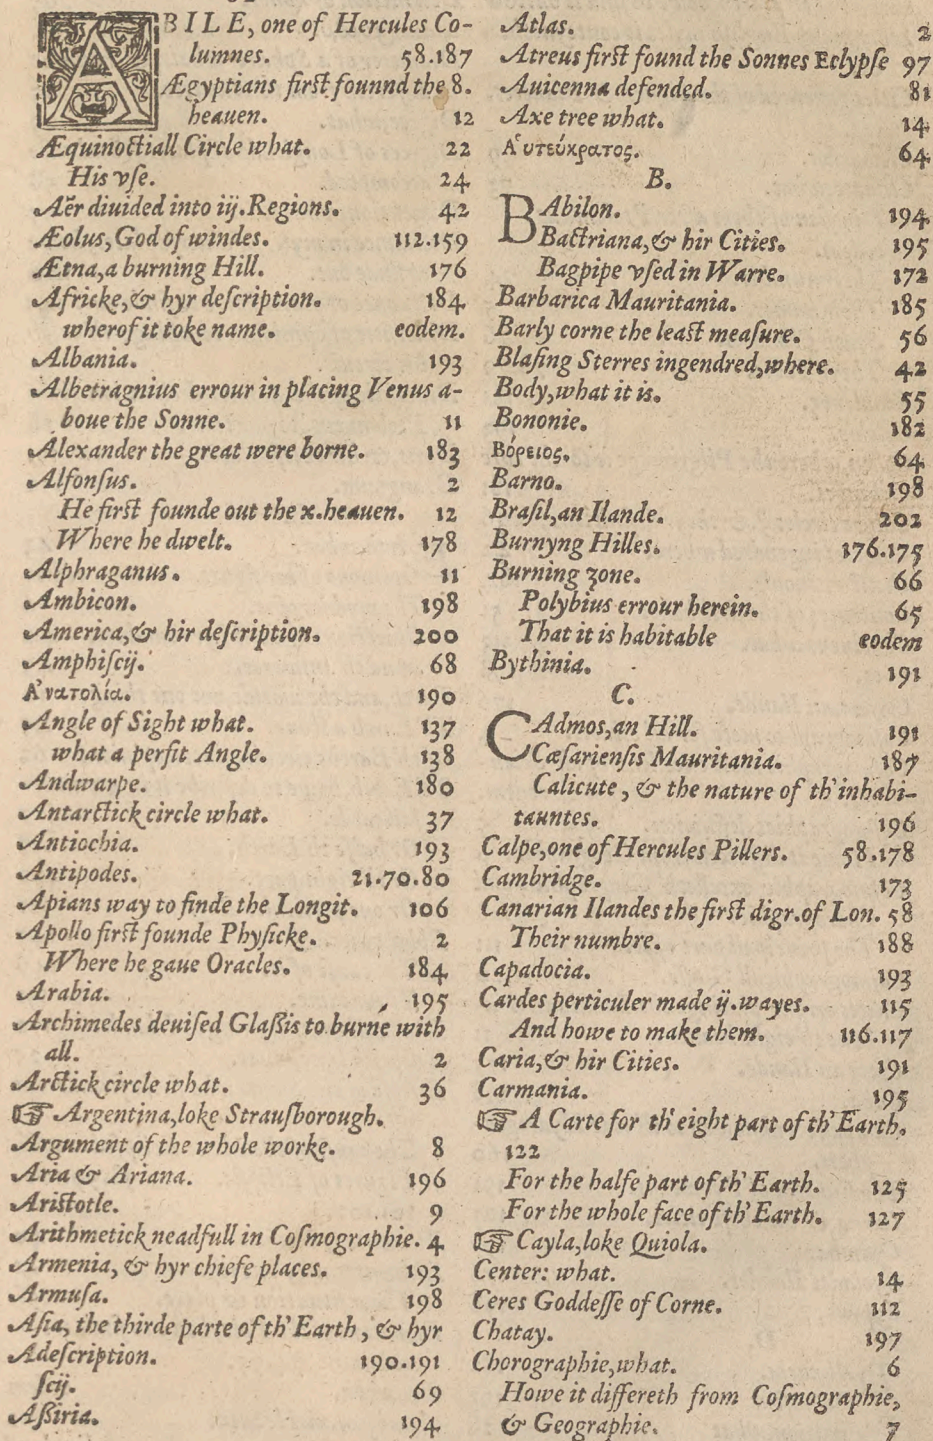 ABILE, one of Hercules Co-
lumnes. 58.187
Ægyptians first founnd the 8.
heauen. 12
Æquinoctiall Circle what. 22
His vse. 24
Aër diuided into iij. Regions. 42
Æolus, God of windes. 112.159
Ætna, a burning Hill. 176
Africke, & hyr description. 184
wherof it toke name. eodem.
Albania. 193
Albetragnius errour in placing Venus a-
boue the Sonne. 11
Alexander the great were borne. 183
Alfonsus. 2
He first founde out the x. heauen. 12
Where he dwelt. 178
Alphraganus. 11
Ambicon. 198
America, & hir description. 200
Amphiscij. 68
Ἀνατολία. 190
Angle of Sight what. 137
what a perfit Angle. 138
Andwarpe. 180
Antarctick circle what. 37
Antiochia. 193
Antipodes. 21.70.80
Apians way to finde the Longit. 106
Apollo first founde Physicke. 2
Where he gaue Oracles. 184
Arabia. 195
Archimedes deuised Glassis to burne with
all. 2
Arctick circle what. 36
☞ Argentina, loke Strausborough.
Argument of the whole worke. 8
Aria & Ariana. 196
Aristotle. 9
Arithmetick neadfull in Cosmographie. 4
Armenia, & hyr chiefe places. 193
Armusa. 198
Asia, the thirde parte of th' Earth, & hyr
Adescription. 190.191
scij. 69
Assiria. 194
Atlas. 2
Atreus first found the Sonnes Eclypse 97
Auicenna defended. 81
Axe tree what. 14
Ἀυτεύκρατος. 64
B.
BAbilon. 194
Bactriana, & hir Cities. 195
Bagpipe vsed in Warre. 172
Barbarica Mauritania. 185
Barly corne the least measure. 56
Blasing Sterres ingendred, where. 42
Body, what it is. 55
Bononie. 182
Βόρειος. 64
Barno. 198
Brasil, an Ilande. 202
Burnyng Hilles. 176.175
Burning zone. 66
Polybius errour herein. 65
That it is habitable eodem
Bythinia. 191
C.
CAdmos, an Hill. 191
Cæsariensis Mauritania. 187
Calicute, & the nature of th' inhabi-
tauntes. 196
Calpe, one of Hercules Pillers. 58.178
Cambridge. 173
Canarian Ilandes the first digr. of Lon. 58
Their numbre. 188
Capadocia. 193
Cardes perticuler made ij. wayes. 115
And howe to make them. 116.117
Caria, & hir Cities. 191
Carmania. 195
☞ A Carte for th' eight part of th' Earth.
122
For the halfe part of th' Earth. 125
For the whole face of th' Earth. 127
☞ Cayla, loke Quiola.
Center: what. 14
Ceres Goddesse of Corne. 112
Chatay. 197
Chorographie, what. 6
Howe it differeth from Cosmographie,
& Geographie. 7